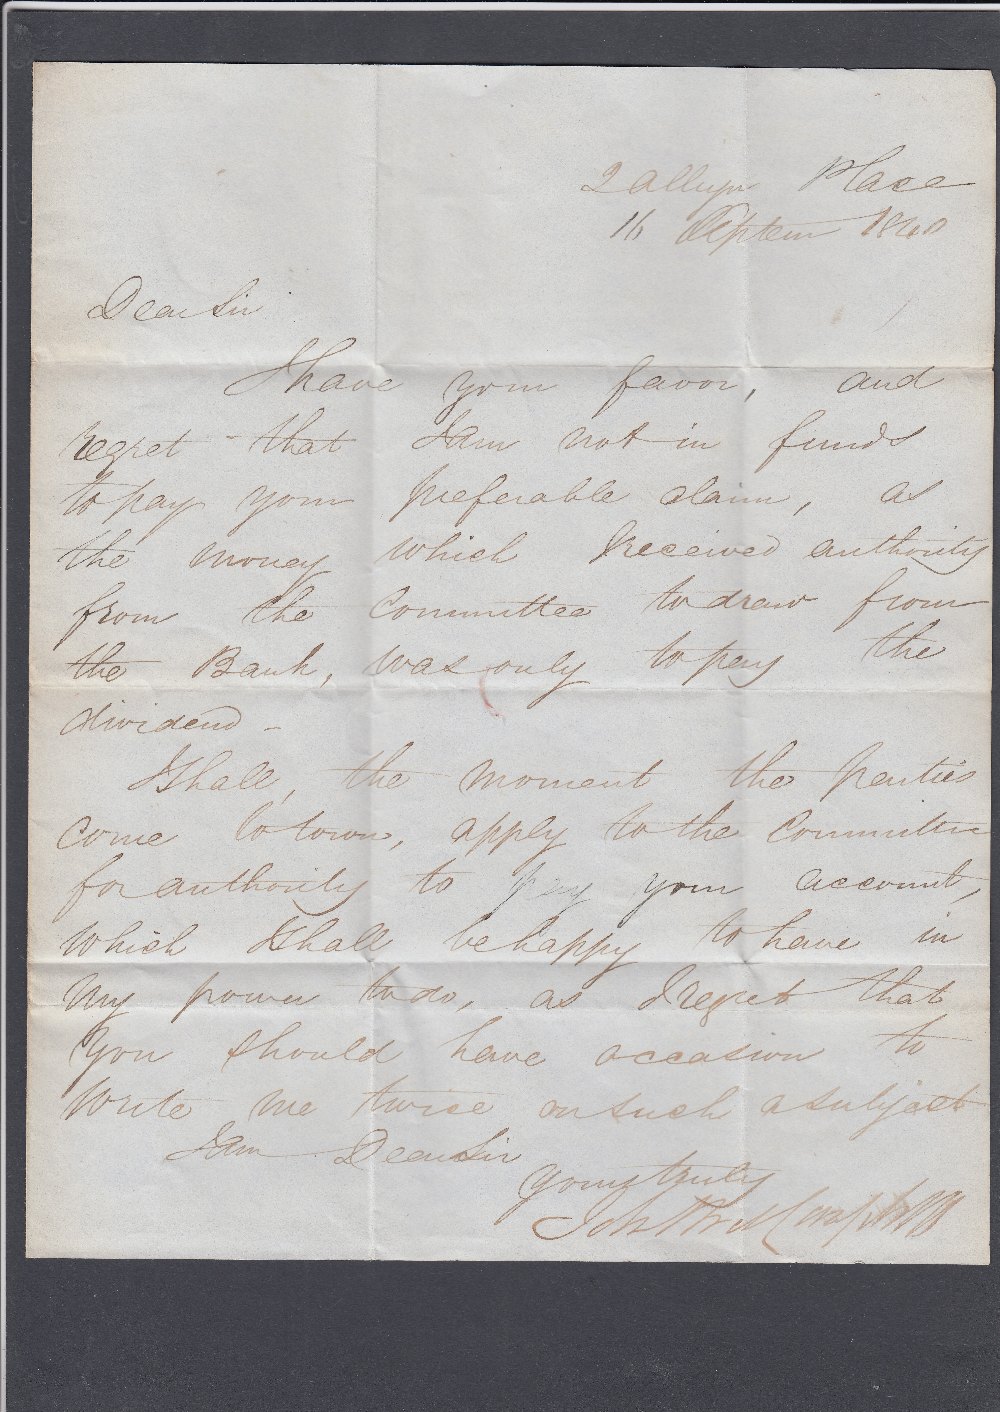 2 Allyn Place
16 Septem 1840
Dear Sir
I have your favor, and
regret that I am not in funds
to pay your preferable claim, as
the money which I received authority
from the Committee to draw from
the Bank, was only to pay the
dividend -
I shall, the moment the parties
come to town, apply to the Committee
for authority to pay your account,
which I shall be happy to have in
my power to do, as I regret that
you should have occasion to
write me twice on such a subject
I am Dear Sir
yours truly
John Campbell